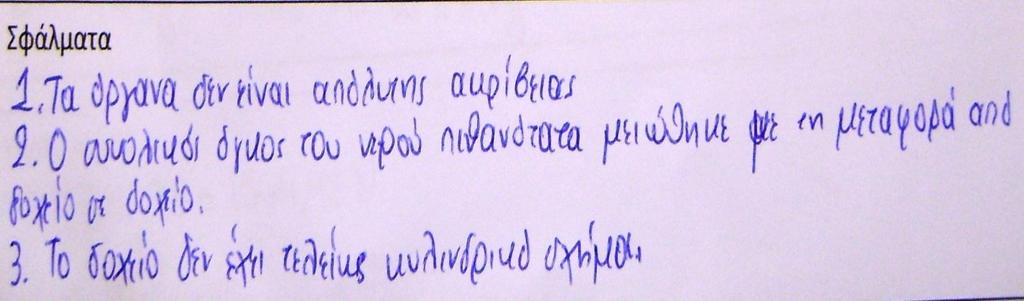 Σφάλματα
1. Τα όργανα δεν είναι απόλυτης ακρίβειας
2. Ο συνολικός όγκος του νερού πιθανότατα μειώθηκε με τη μεταφορά από
δοχείο σε δοχείο.
3. Το δοχείο δεν έχει τελείως κυλινδρικό σχήμα.